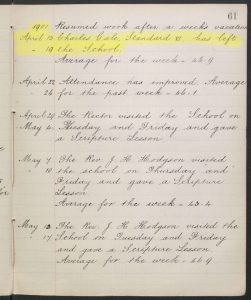 61
1901 Resumed work after a weeks vacation
April 15 Charles Cale, Standard VI, has left
- 19 the School.
Average for the week - 46.9
April 22 Attendance has improved. Average
- 26 for the past week - 46.1
April 29 The Rector visited the School on
May 4 Tuesday and Friday and gave
a Scripture Lesson
May 7 The Rev. J. H. Hodgson visited
- 10 the school on Thursday and
Friday and gave a Scripture
Lesson
Average for the week - 43.4
May 13 The Rev. J. H. Hodgson visited the
- 17 School on Tuesday and Friday
and gave a Scripture Lesson
Average for the week - 46.9